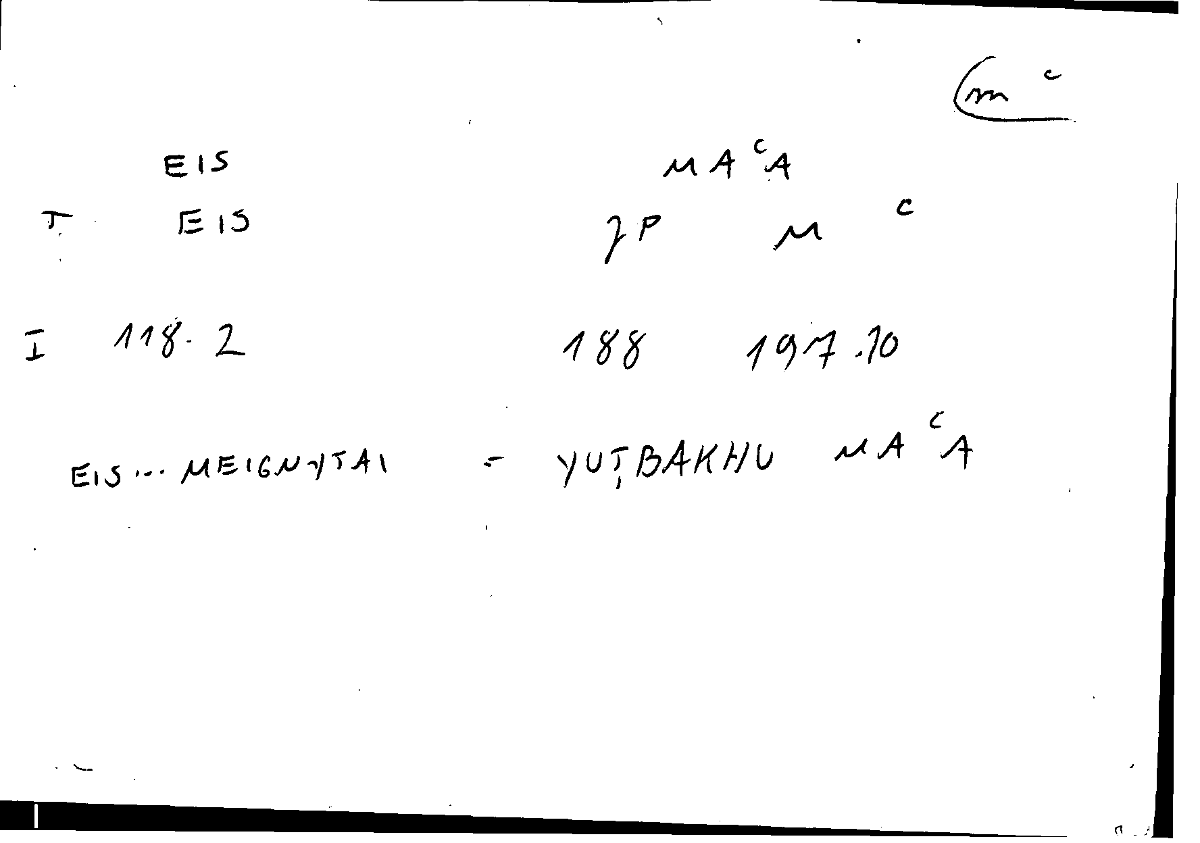 m ᶜ
EIS MAᶜA
T EIS JP M ᶜ
I 118.2 188 197.10
EIS... MEIGNYTAI = YUṬBAKHU MAᶜA